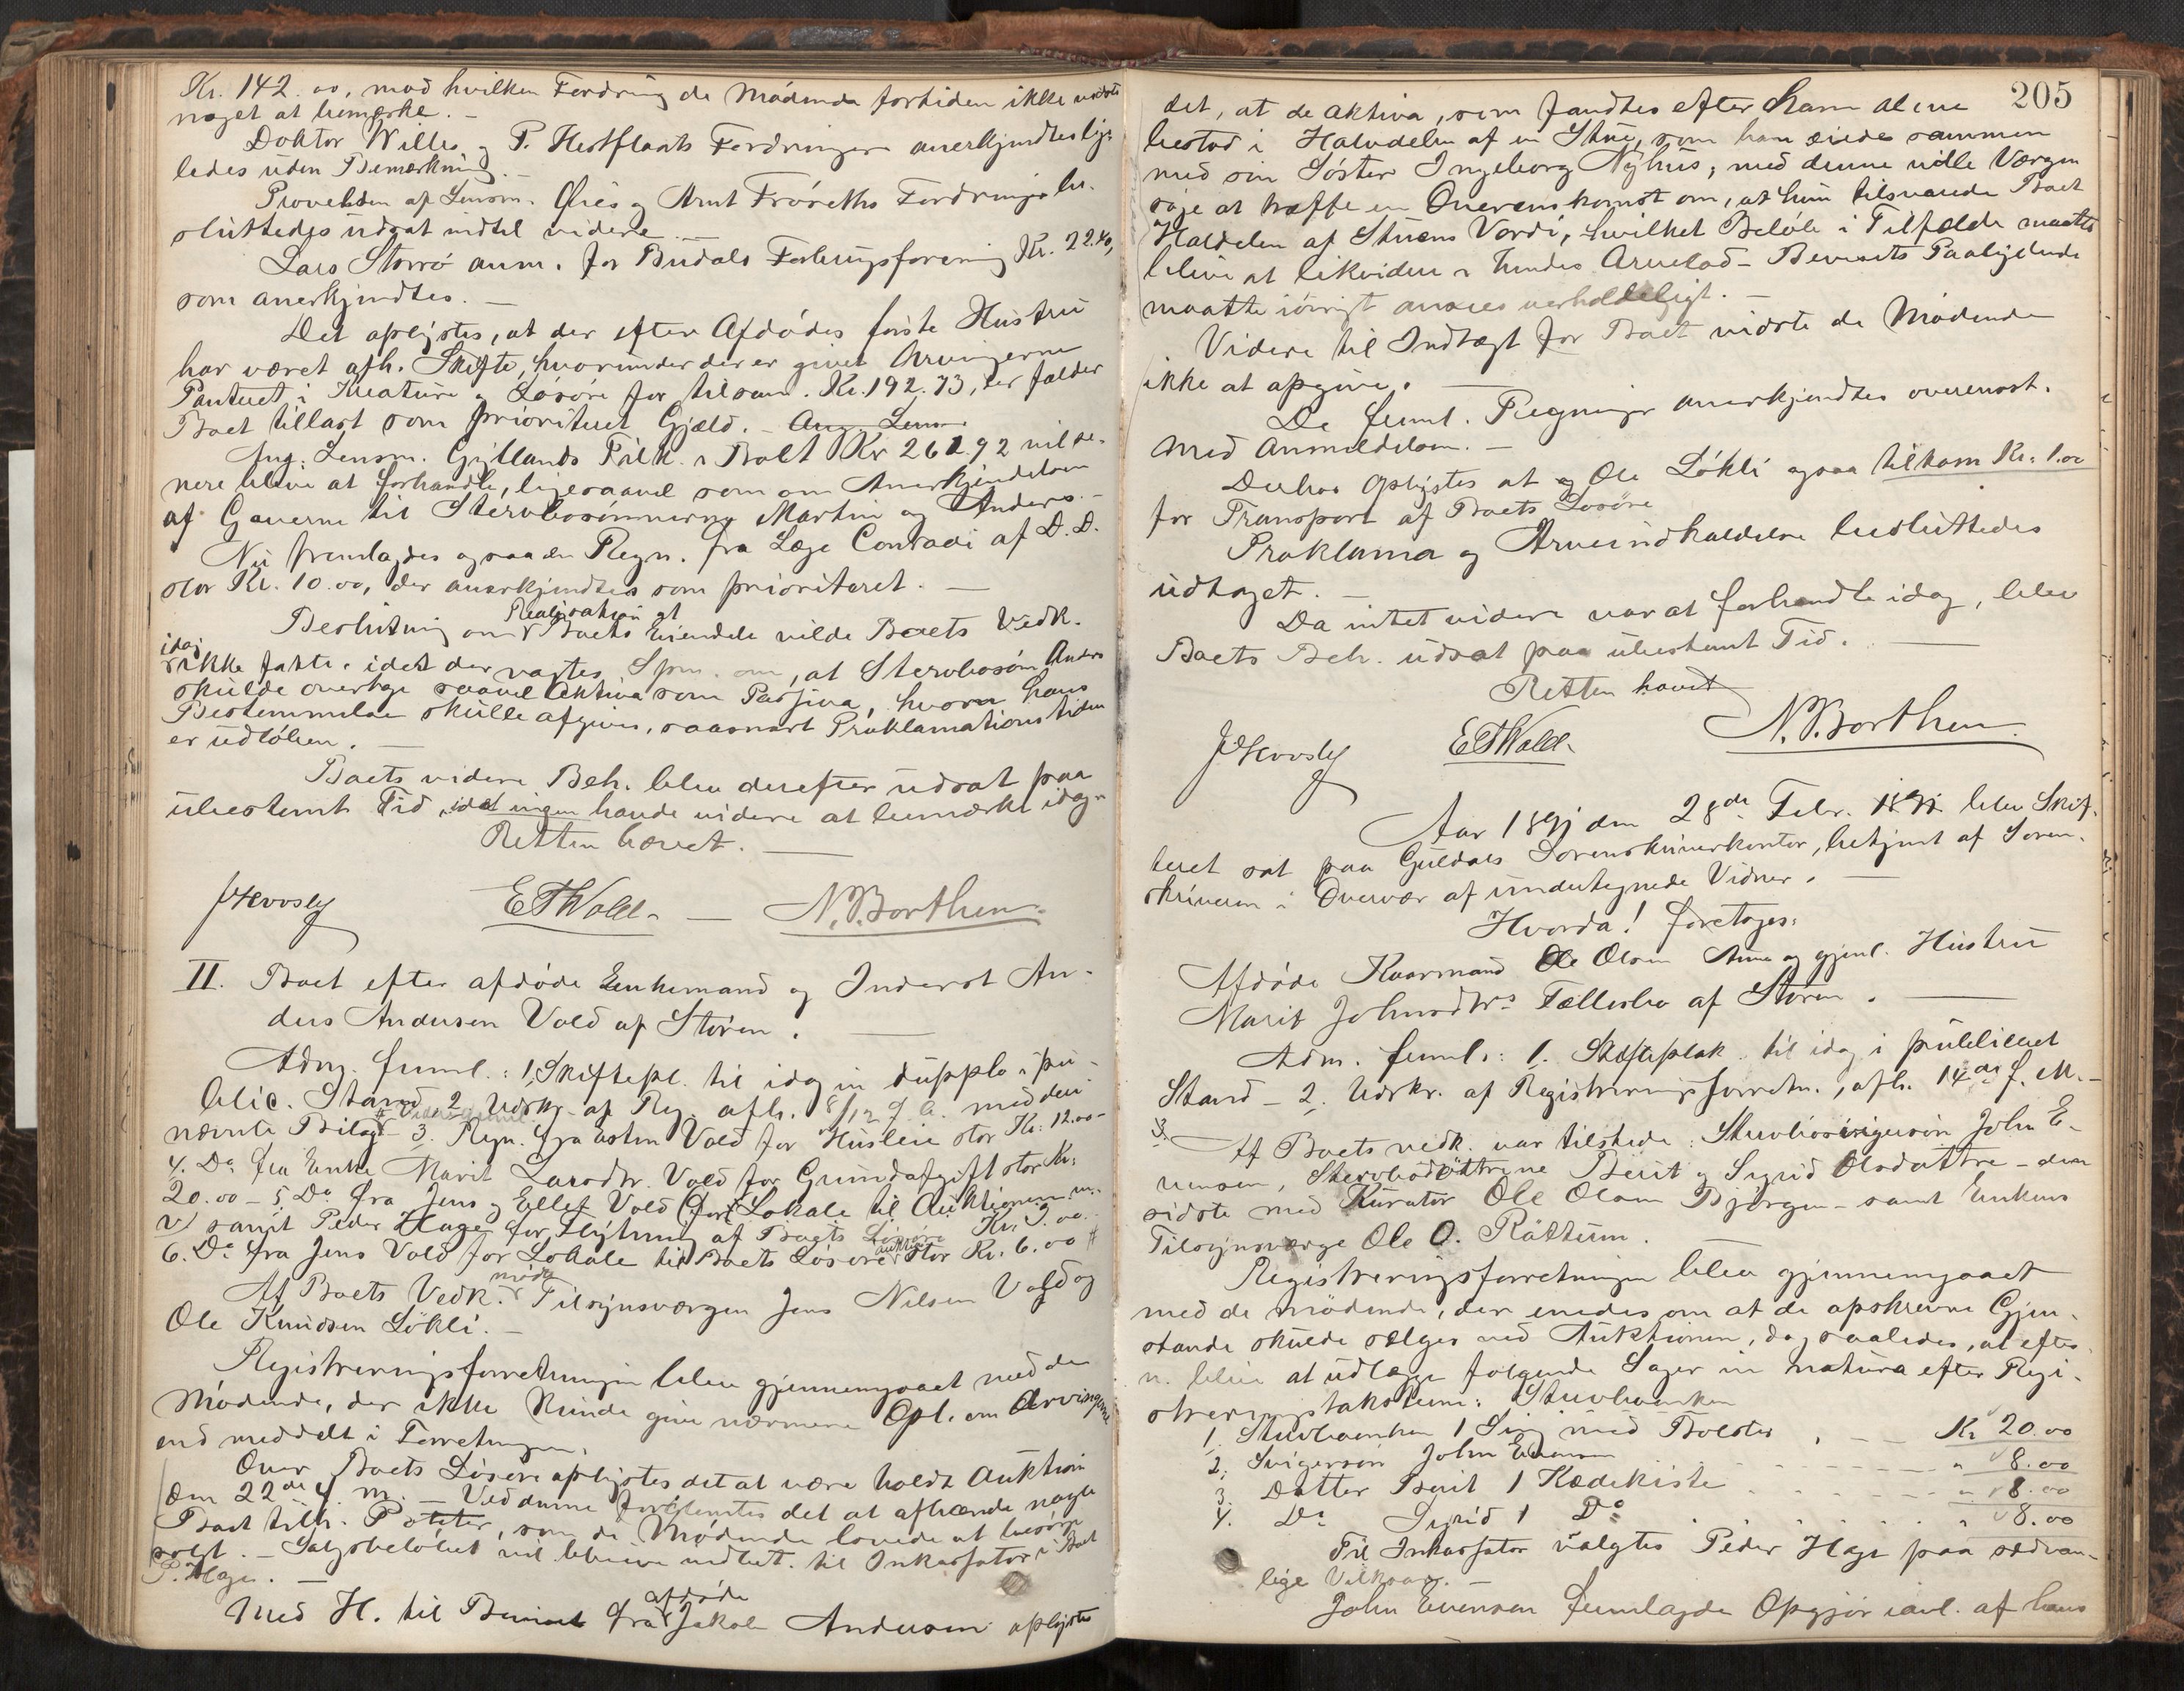 Kr. 142.00, mod hvilken Fordring de Mödende fortiden ikke vidste
noget at bemærke. -
Doktor Willes og P. Hestflaats Fordringer anerkjendtes lige-
ledes uden Bemærkning. -
Provelsen af Lensm. Øies og Arnt Fröseths Fordringer be-
sluttedes udsat indtil videre. -
Lars Storrö anm. for Budals Forbrugsforening Kr. 22.40,
som anerkjendtes. -
Det oplystes, at der efter Afdödes förste Hustru
har været afh. Skifte, hvorunder der er givet Arvingerne
Panteret i Kreature og Lösöre for tilsam. Kr. 192.73, der falder
Boet tillast som prioriteret Gjæld. - Ang. Lensm
Ang. Lensm. Gyllands Tilk. i Boet Kr 261.92 vil se-
nere blive at forhandle, ligesaavel som om Anerkjendelsen
af Gaverne til Stervbosönnerne Martin og Anders. -
Nu fremlagdes ogsaa en Regn. fra Læge Conradi af D.D.
stor Kr. 10.00, der anerkjendtes som prioriteret. -
Beslutning om Realisation af Boets Eiendele vilde Boets Vedk.
idag ikke fatte, idet der vaktes Spm. om, at Stervbosön Anders
skulde overtage saavel Aktiva som Passiva, hvorom hans
Bestemmelse skulle afgives, saasnart Proklamationstiden
er udlöben. -
Boets videre Beh. blev derefter udsat paa
ubestemt Tid, idet ingen havde videre at bemærke idag. -
Retten hævet. -
J Hovsly E T Wold. - N. B. Borthen.
II. Boet efter afdöde Enkemand og Inderst An-
ders Andersen Vold af Stören. -
Adm. freml.: 1, Skiftepl. til idag in dupplo i pu-
blic. Stand 2, Udskr. af Reg. afh. 8/12 f. A. med deri
nævnte Bilag - 3. Regn. fra Esten Vold for Husleie stor Kr. 12.00 -
4. Do fra Enke Marit Larsdtr. Vold for Grundafgift stor Kr.
20.00 - 5. Do fra Jens og Ellef Vold for Lokale til Auktionen m.
v. samt Peder Hage for Flytning af Boets Lösöre Kr. 9.00.
6. Do fra Jens Vold for Lokale til Boets Lösöreauktion stor Kr. 6.00 #
Af Boets Vedk. mödte Tilsynsværgen Jens Nilsen Vold og
Ole Knudsen Lökli. -
Registreringsforretningen blev gjennemgaaet med de
Mödende, der ikke kunde give nærmere Opl. om Arvingerne
end meddelt i Forretningen.
Over Boets Lösöre oplystes det at være holdt Auktion
den 22de f. M. - Ved denne forglemtes det at afhænde nogle
Boet tilh. Poteter, som de Mödende lovede at besörge
solgt. - Salgsbelöbet vil blive indbet. til Inkassator i Boet
P. Hage. -
Med H. til Beviset fra afdöde Jakob Andersen oplyste
205
det, at de Aktiva, som fandtes efter ham alene
bestod i Halvdelen af en Stue, som han eiede sammen
med sin Söster Ingeborg Nyhus; med denne vilde Værgen
söge at træffe en Overenskomst om, at hun tilsvarede Boet
Haldelen af Stuens Værdi, hvilket Belöb i Tilfælde maatte
blive at likvidere i hendes Arvelod - Bevisets Paalydende
maatte iövrigt ansees uerholdeligt. -
Videre til Indtægt for Boet vidste de Mödende
ikke at opgive. -
De freml. Regninger anerkjendtes overensst.
med Anmeldelsen. -
Derhos oplystes at og Ole Lökli ogsaa tilkom Kr. 1.00
for Transport af Boets Lösöre
Proklama og Arveindkaldelse besluttedes
udtaget. -
Da intet videre var at forhandle idag, blev
Boets Beh. udsat paa ubestemt Tid. -
Retten hævet
J Hovsly E T Wold. N. B. Borthen.
Aar 1891 den 28de Febr. 1891 blev Skif-
teret sat paa Guldals Sorenskriverkontor, betjent af Soren-
skriveren i Overvær af undertegnede Vidner. -
Hvorda! foretoges:
Afdöde Kaarmand Ole Olsen Aune og gjenl. Hustru
Marit Johnsdtrs Fællesbo af Stören. -
Adm. freml.: 1. Skifteplak. til idag i publiceret
Stand - 2. Udskr. af Registreringsforretn., afh. 14de f. M. -
3.
Af Boets vedk. var tilstede: Stervbosvigersön John E-
vensen, Stervbodöttrene Berit og Sigrid Olsdöttre - den
sidste med Kurator Ole Olsen Bjørgen - samt Enkens
Tilsynsværge Ole O. Råttum.
Registreringsforretningen blev gjennemgaaet
med de mödende, der enedes om at de opskrevne Gjen-
stande skulde sælges ved Auktionen, dog saaledes, at efter-
n. blev at udlægge fölgende Sager in natura efter Regi-
streringstaksten: Stervboenken
1. Stervboenken 1 Seng med Bolster . - - Kr 20.00
2. Svigersön John Evensen - - - - - " 8.00
3. Datter Berit 1 Klædekiste - - - - " 8.00
4. Do Sigrid 1 Do - - - - " 8.00
Til Inkassator valgtes Peder Hage paa sædvan-
lige Vilkaar. -
John Evensen fremlagde Opgjör iavl. af hans